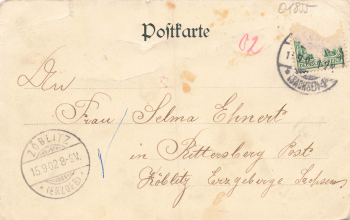 01855
Postkarte
02
An
Frau Selma Ehnert
in Rittersberg Post
Zöblitz Erzgebirge Sachsen
ZÖBLITZ
15.9.02. 8-9V.
(ERZGEB.)
(SACHSEN)